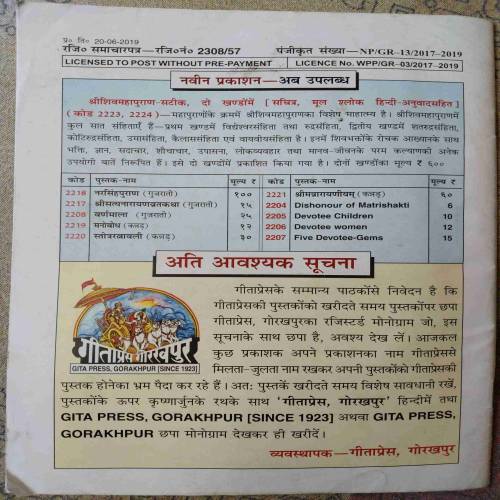 प्र० ति० 20-06-2019
रजि० समाचारपत्र—रजि०नं० 2308/57 पंजीकृत संख्या—NP/GR-13/2017-2019
LICENSED TO POST WITHOUT PRE-PAYMENT LICENCE No. WPP/GR-03/2017-2019
नवीन प्रकाशन—अब उपलब्ध
श्रीशिवमहापुराण-सटीक, दो खण्डोंमें [सचित्र, मूल श्लोक हिन्दी-अनुवादसहित]
(कोड 2223, 2224)—महापुराणोंके क्रममें श्रीशिवमहापुराणका विशेष माहात्म्य है। श्रीशिवमहापुराणमें
कुल सात संहिताएँ हैं—प्रथम खण्डमें विद्येश्वरसंहिता तथा रुद्रसंहिता, द्वितीय खण्डमें शतरुद्रसंहिता,
कोटिरुद्रसंहिता, उमासंहिता, कैलाससंहिता एवं वायवीयसंहिता है। इनमें शिवभक्तोंके रोचक आख्यानके साथ
भक्ति, ज्ञान, सदाचार, शौचाचार, उपासना, लोकव्यवहार तथा मानव-जीवनके परम कल्याणकी अनेक
उपयोगी बातें निरूपित हैं। इसे दो खण्डोंमें प्रकाशित किया गया है। दोनों खण्डोंका मूल्य ₹ ६००
कोड पुस्तक-नाम मूल्य ₹ कोड पुस्तक-नाम मूल्य ₹
2218 नरसिंहपुराण (गुजराती) १०० 2221 श्रीमन्नारायणीयम् (कन्नड़) ६०
2217 श्रीसत्यनारायणव्रतकथा (गुजराती) १५ 2204 Dishonour of Matrishakti 6
2208 वर्णमाला (गुजराती) २५ 2205 Devotee Children 10
2219 मनोबोध (कन्नड़) १२ 2206 Devotee women 12
2220 स्तोत्ररत्नावली (कन्नड़) ३० 2207 Five Devotee-Gems 15
अति आवश्यक सूचना
गीताप्रेसके सम्मान्य पाठकोंसे निवेदन है कि
गीताप्रेसकी पुस्तकोंको खरीदते समय पुस्तकोंपर छपा
गीताप्रेस, गोरखपुरका रजिस्टर्ड मोनोग्राम जो, इस
सूचनाके साथ छपा है, अवश्य देख लें। आजकल
कुछ प्रकाशक अपने प्रकाशनका नाम गीताप्रेससे
मिलता-जुलता नाम रखकर अपनी पुस्तकोंको गीताप्रेसकी
गीताप्रेस गोरखपुर
GITA PRESS, GORAKHPUR [SINCE 1923]
पुस्तक होनेका भ्रम पैदा कर रहे हैं। अतः पुस्तकें खरीदते समय विशेष सावधानी रखें,
पुस्तकोंके ऊपर कृष्णार्जुनके रथके साथ 'गीताप्रेस, गोरखपुर' हिन्दीमें तथा
GITA PRESS, GORAKHPUR [SINCE 1923] अथवा GITA PRESS,
GORAKHPUR छपा मोनोग्राम देखकर ही खरीदें।
व्यवस्थापक—गीताप्रेस, गोरखपुर